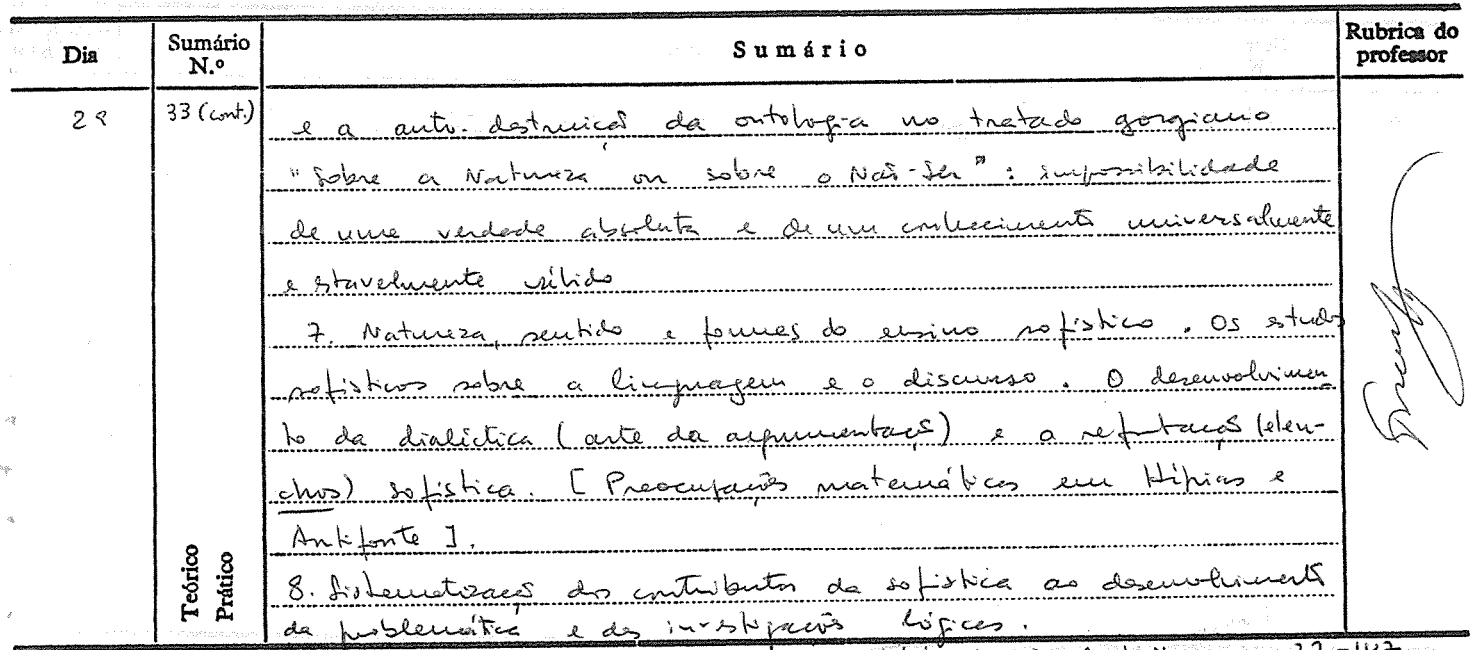 Dia Sumário N.º Sumário Rubrica do professor
28 33 (cont.) e a auto-destruição da ontologia no tratado gorgiano
"Sobre a Natureza ou sobre o Não-Ser": impossibilidade
de uma verdade absoluta e de um conhecimento universalmente
e estavelmente válido
7. Natureza, sentido e formas do ensino sofístico. Os estudos
sofísticos sobre a linguagem e o discurso. O desenvolvimen
to da dialéctica (arte da argumentação) e a refutação (elen-
chos) sofística. [Preocupações matemáticas em Hípias e
Antifonte].
Teórico Prático
8. Sistematização dos contributos da sofística ao desenvolvimento
da problemática e das investigações lógicas.